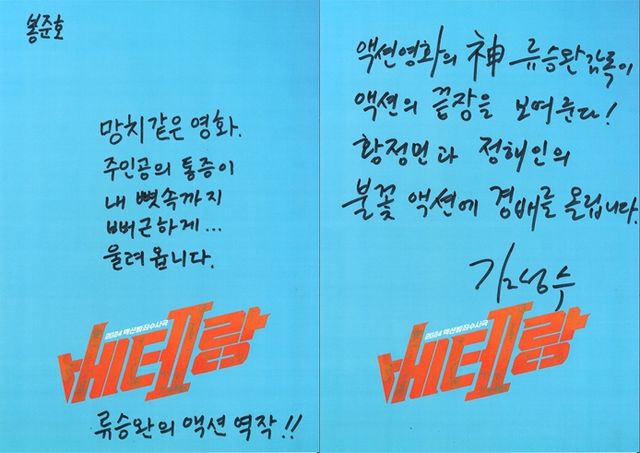 봉준호
망치같은 영화.
주인공의 통증이
내 뼛속까지
뻐근하게...
울려옵니다.
2024 액션범죄수사극
베테랑
류승완의 액션 역작!!
액션영화의 神 류승완감독이
액션의 끝장을 보여준다!
황정민과 정해인의
불꽃 액션에 경배를 올립니다.
김성수
2024 액션범죄수사극
베테랑